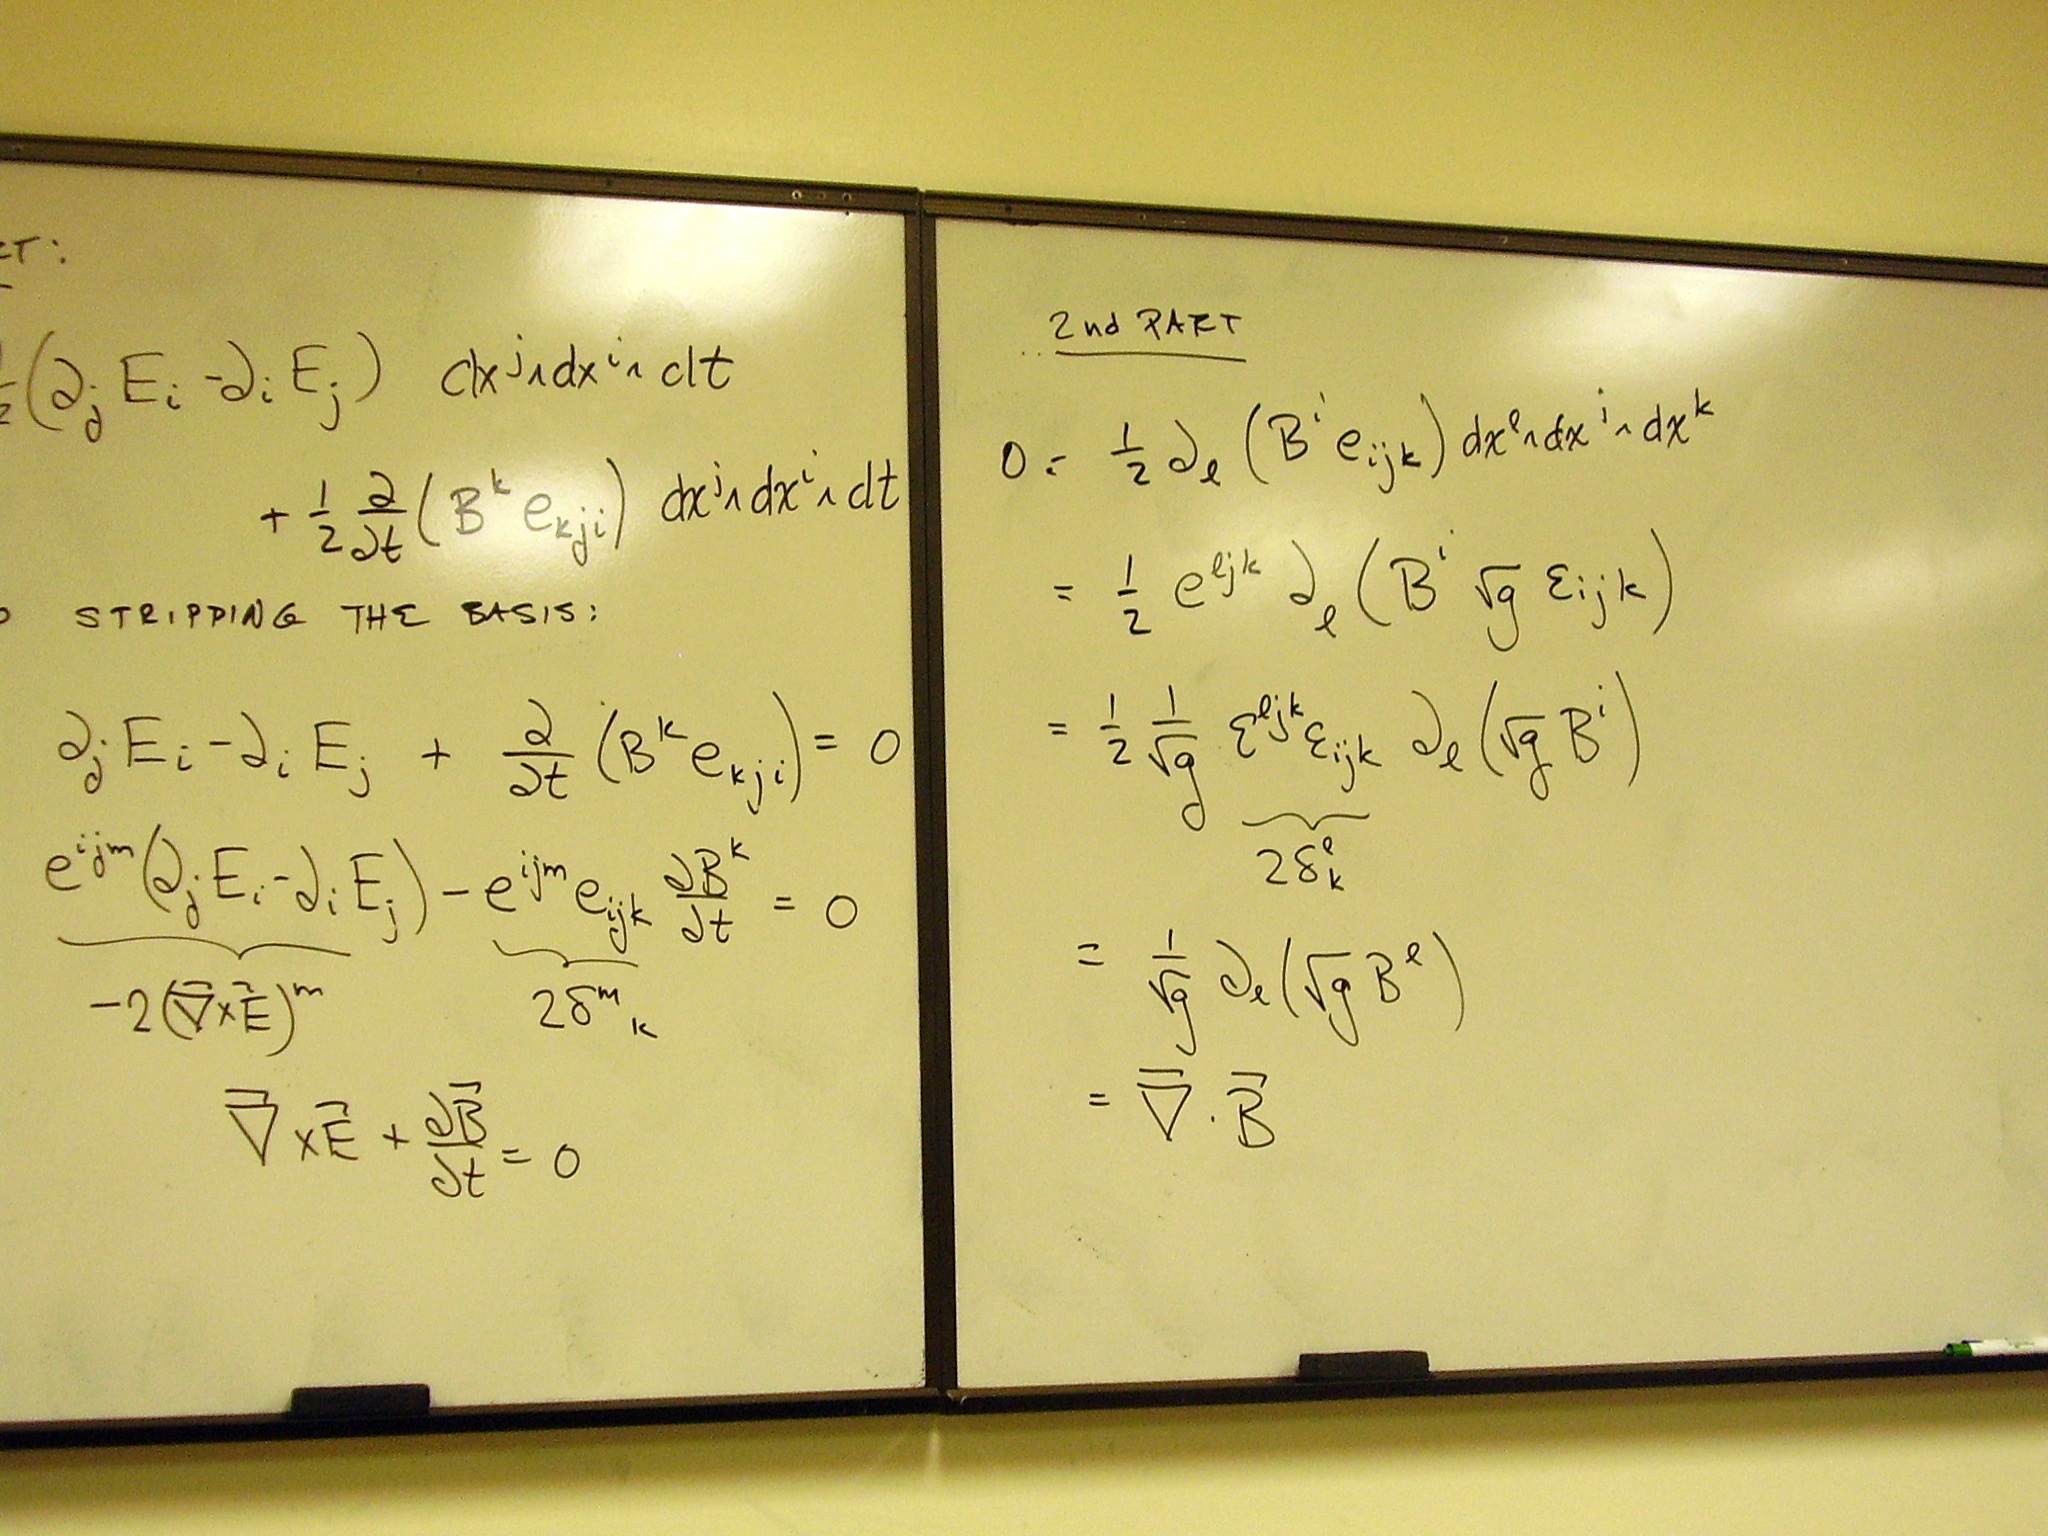 RT:
½(∂_j E_i - ∂_i E_j) dx^j ∧ dx^i ∧ dt
+ 1/2 ∂/∂t (B^k e_kji) dx^j ∧ dx^i ∧ dt
STRIPPING THE BASIS:
∂_j E_i - ∂_i E_j + ∂/∂t (B^k e_kji) = 0
e^ijm (∂_j E_i - ∂_i E_j) - e^ijm e_ijk ∂B^k/∂t = 0
-2(∇⃗×E⃗)^m 2δ^m_k
∇⃗×E⃗ + ∂B⃗/∂t = 0
2nd PART
0 = 1/2 ∂_ℓ (B^i e_ijk) dx^ℓ ∧ dx^j ∧ dx^k
= 1/2 e^ℓjk ∂_ℓ (B^i √g ε_ijk)
= 1/2 1/√g ε^ℓjk ε_ijk ∂_ℓ (√g B^i)
2δ^ℓ_k
= 1/√g ∂_ℓ (√g B^ℓ)
= ∇⃗ · B⃗